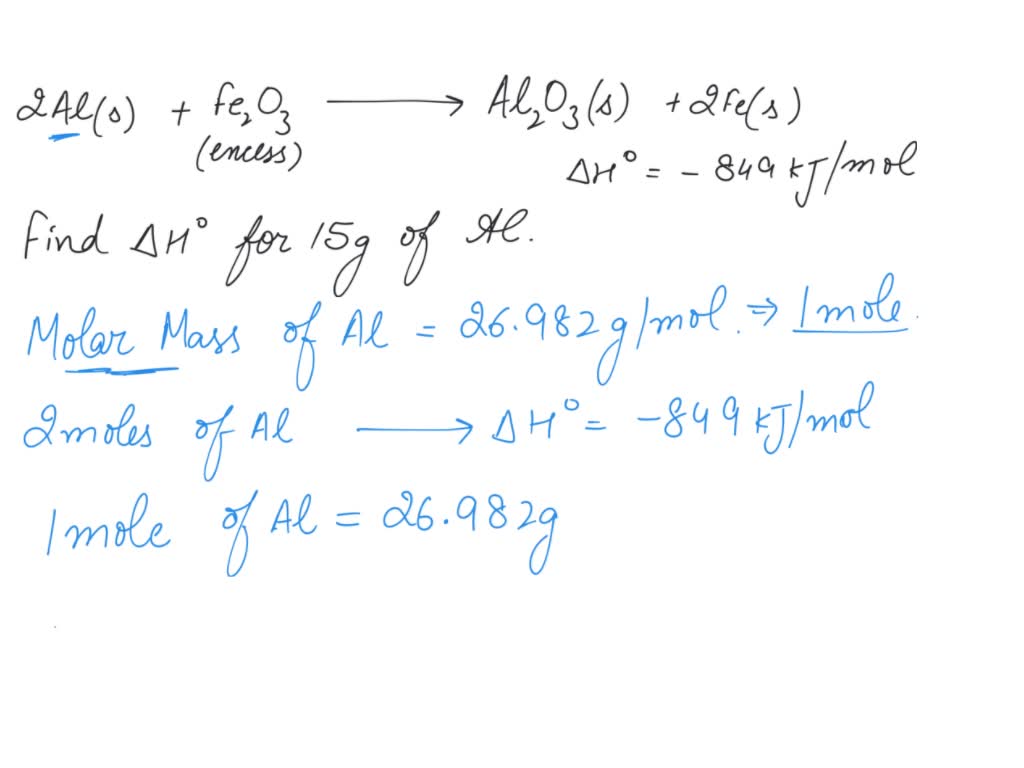 2Al(s) + Fe₂O₃ ⟶ Al₂O₃(s) + 2Fe(s)
(encess)
ΔH° = - 849 kJ/mol
Find ΔH° for 15g of Al.
Molar Mass of Al = 26.982g/mol. ⇒ 1mole.
2moles of Al ⟶ ΔH° = -849 kJ/mol
1mole of Al = 26.982g